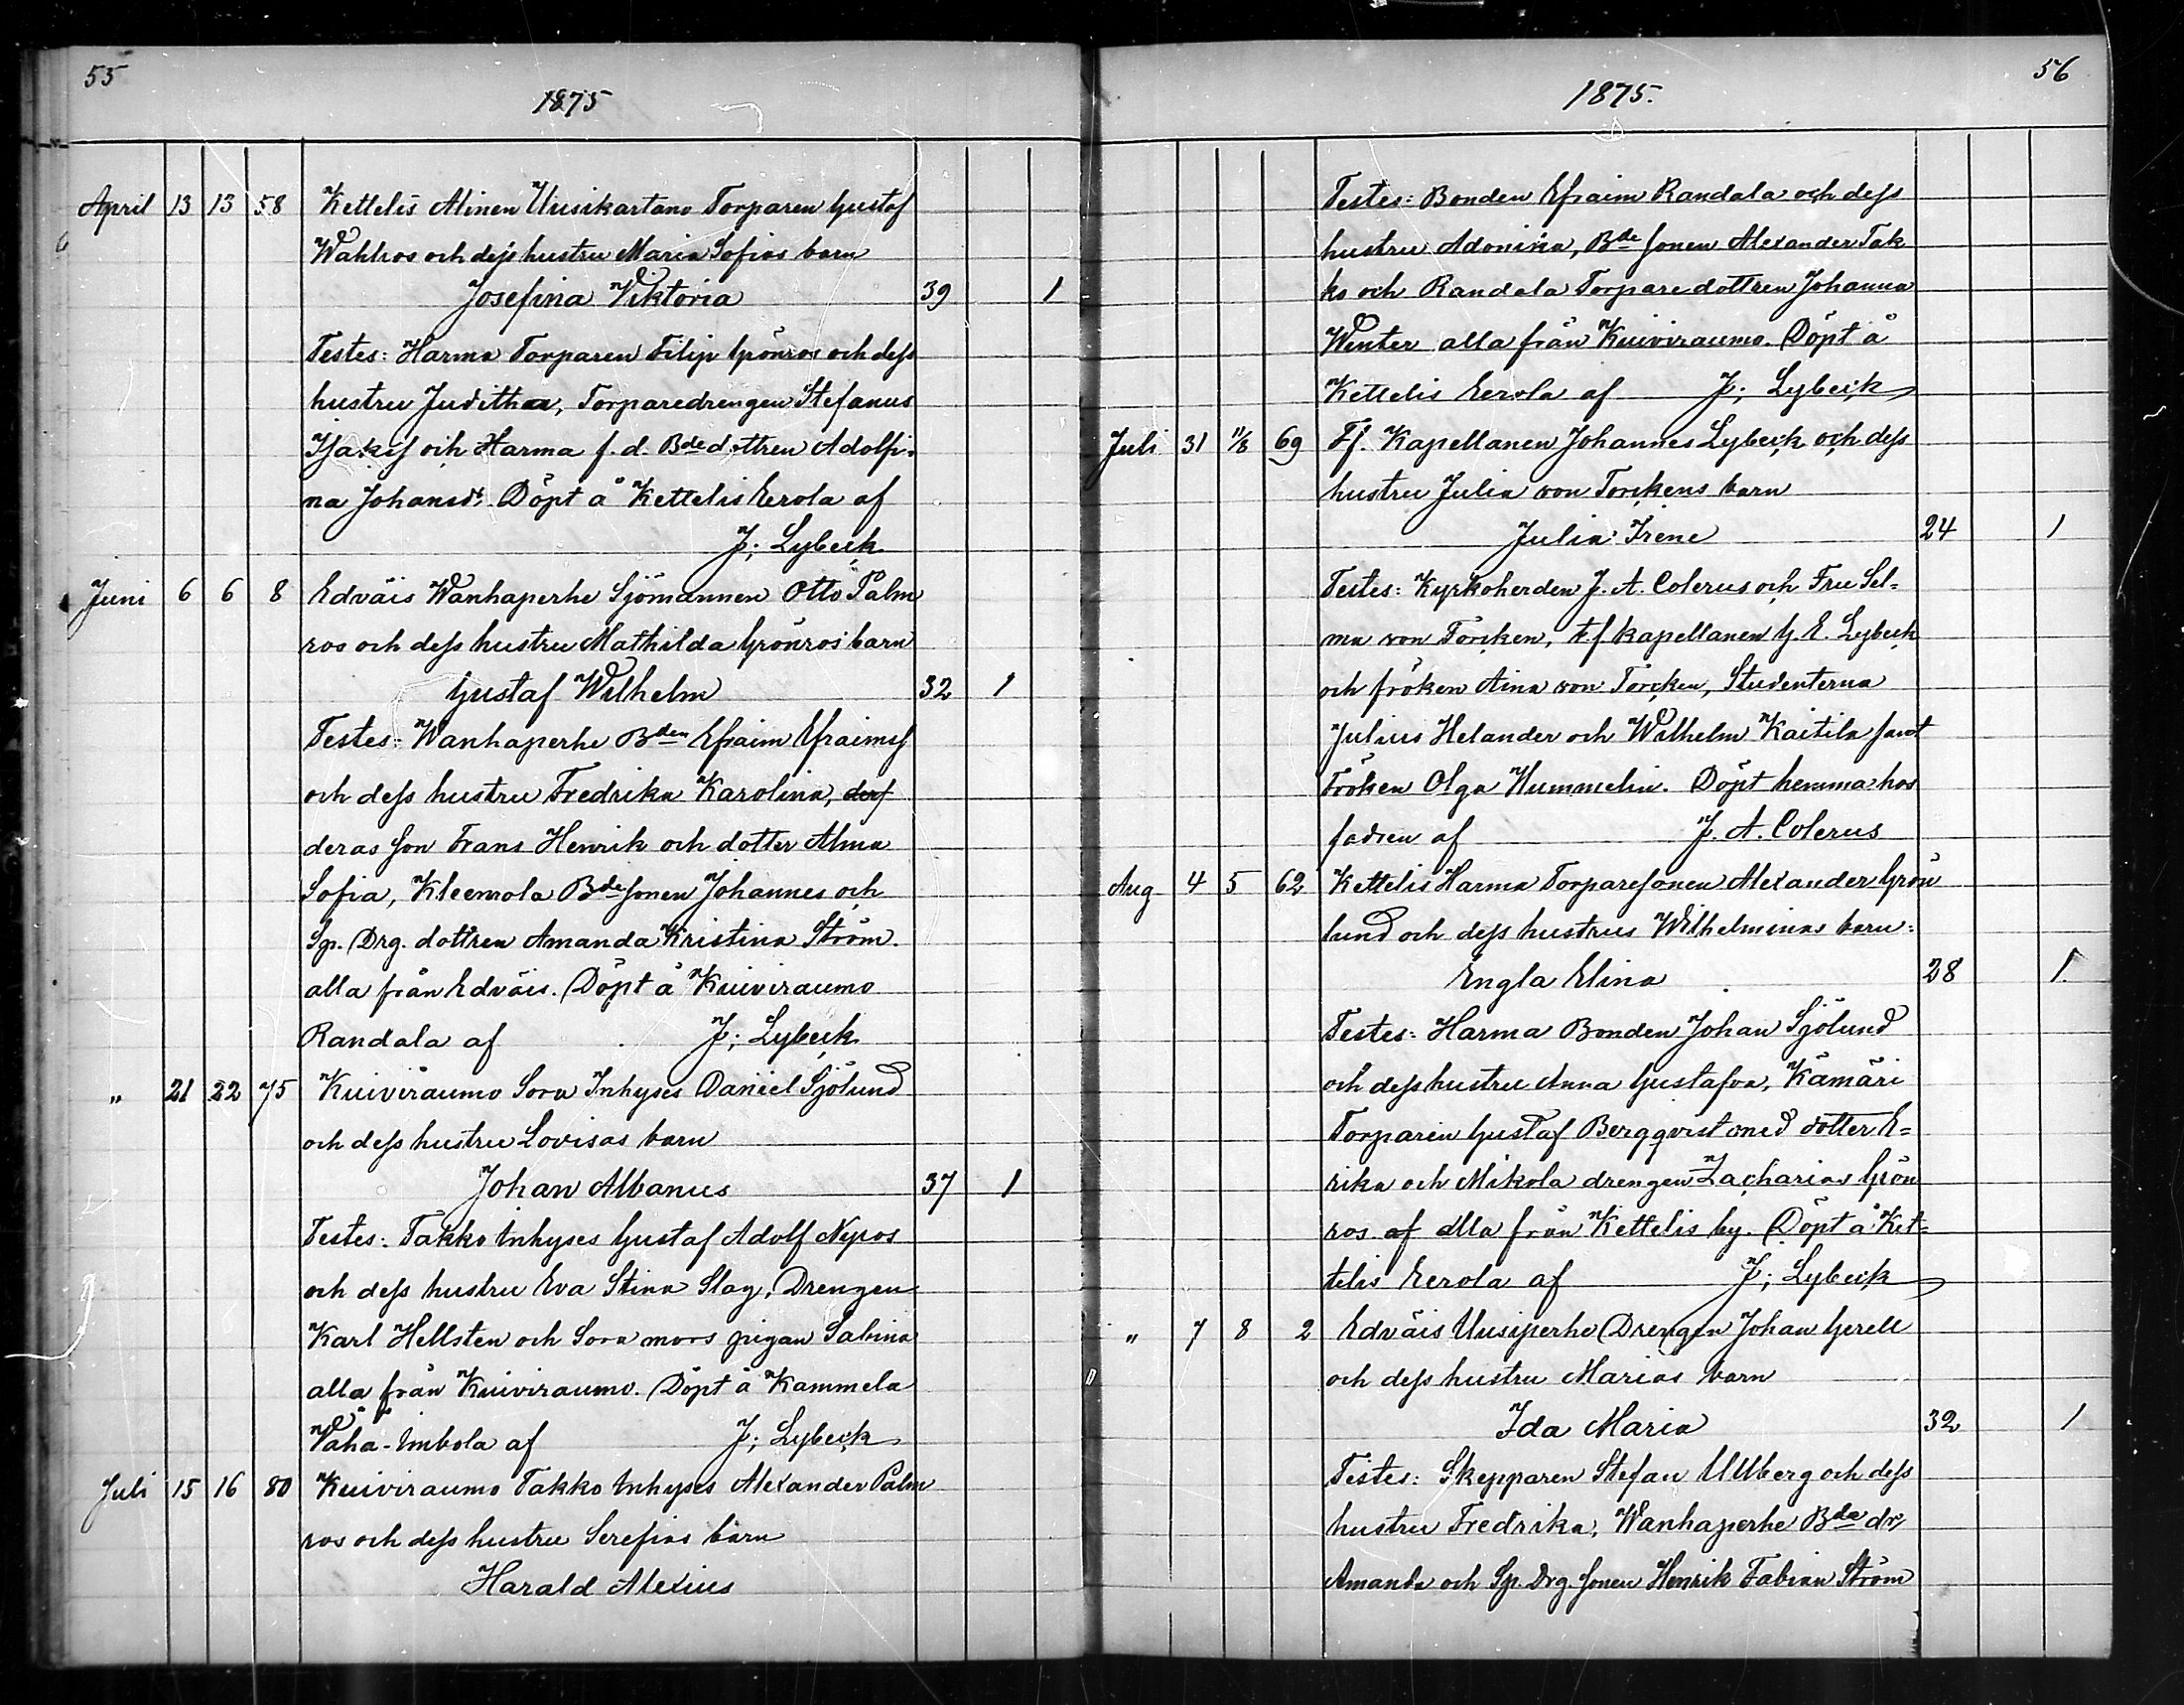 55
1875
April 13 13 58 Kettelis Alinen Uusikartano Torparen Gustaf
Wahlros och dess hustru Maria Sofias barn
Josefina Viktoria 39 1
Testes: Harma Torparen Filip Grönros och dess
hustru Juditha, Torparedrengen Stefanus
Isakss och Harma f. d. Bde dottren Adolfi-
na Johansdr. Döpt å Kettelis Eerola af
J; Lybeck
Juni 6 6 8 Edväis Wanhaperhe Sjömannen Otto Palm
ros och dess hustru Mathilda Grönros barn
Gustaf Wilhelm 32 1
Testes: Wanhaperhe Bden Efraim Efraimss
och dess hustru Fredrika Karolina, ders
deras son Frans Henrik och dotter Alma
Sofia, Kleemola Bde sonen Johannes och
Sp. Drg. dottren Amanda Kristina Ström.
alla från Edväis. Döpt å Kuiviraumo
Randala af J; Lybeck
" 21 22 75 Kuiviraumo Sora Inhyses Daniel Sjölund
och dess hustru Lovisas barn
Johan Albanus 37 1
Testes: Takko Inhyses Gustaf Adolf Nyros
och dess hustru Eva Stina Slag, Drengen
Karl Hellsten och Sora mors pigan Sabina
alla från Kuiviraumo. Döpt å Kammela
Vähä-Imbola af J; Lybeck
Juli 15 16 80 Kuiviraumo Takko Inhyses Alexander Palm
ros och dess hustru Serefias barn
Harald Alexius
56
1875.
Testes: Bonden Efraim Randala och dess
hustru Adonina, Bde sonen Alexander Tak
ko och Randala Torparedottren Johanna
Winter alla från Kuiviraumo. Döpt å
Kettelis Eerola af J; Lybeck
Juli 31 11/8 69 Tf. Kapellanen Johannes Lybeck och dess
hustru Julia von Törckens barn
Julia Irene 24 1
Testes: Kyrkoherden J. A. Colerus och Fru Sel-
ma von Törcken, t f kapellanen G. E. Lybeck
och fröken Aina von Törcken, Studenterna
Julius Helander och Wilhelm Kaitila samt
Fröken Olga Hummelin. Döpt hemma hos
fadren af J. A. Colerus
Aug 4 5 62 Kettelis Harma Torparesonen Alexander Grön
lund och dess hustrus Wilhelminas barn:
Engla Elina 28 1
Testes: Harma Bonden Johan Sjölund
och dess hustru Anna Gustafva, Kämäri
Torparen Gustaf Bergqvist med dotter E-
rika och Mikola drengen Zacharias Grön
ros af alla från Kettelis by. Döpt å Ket-
telis Eerola af J; Lybeck
" 7 8 2 Edväis Uusiperhe Drengen Johan Gerell
och dess hustru Marias barn
Ida Maria 32 1
Testes: Skepparen Stefan Ullberg och dess
hustru Fredrika, Wanhaperhe Bde dr,
Amanda och Sp. Drg. sonen Henrik Fabian Ström